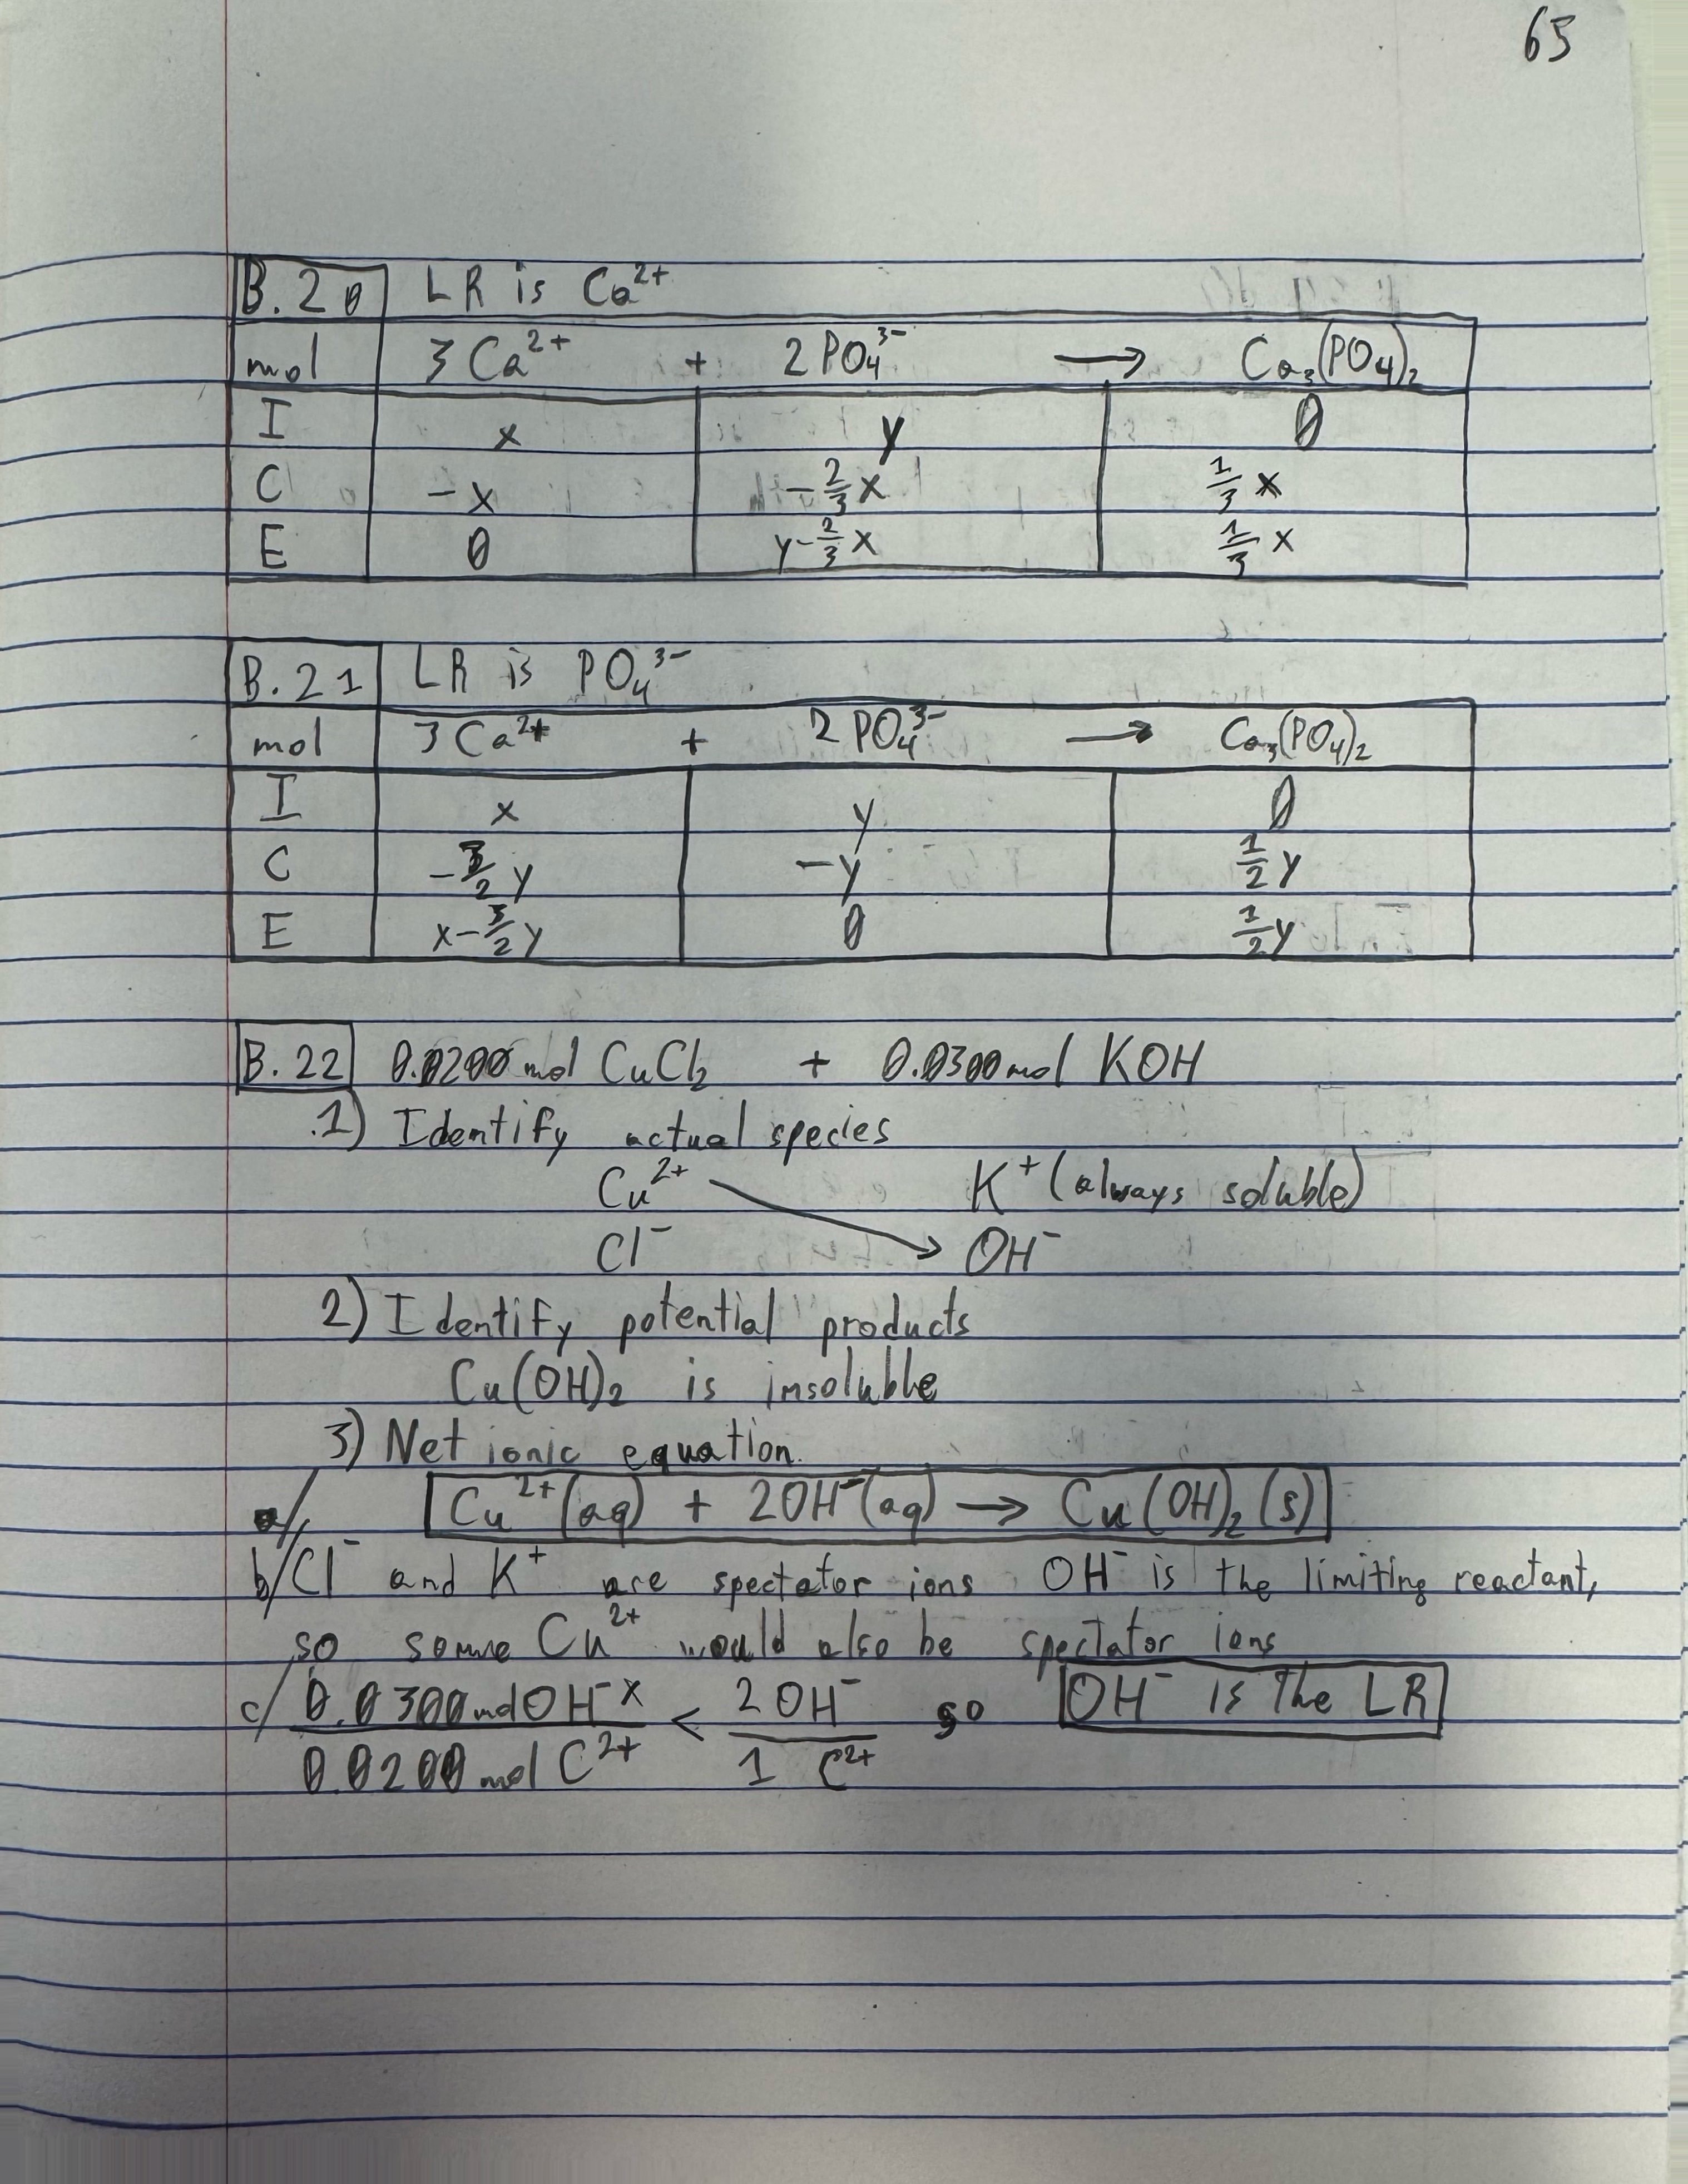 65
B.20 LR is Ca²⁺
mol 3Ca²⁺ + 2PO₄³⁻ → Ca₃(PO₄)₂
I x y 0
C -x -2/3x 1/3x
E 0 y-2/3x 1/3x
B.21 LR is PO₄³⁻
mol 3Ca²⁺ + 2PO₄³⁻ → Ca₃(PO₄)₂
I x y 0
C -3/2y -y 1/2y
E x-3/2y 0 1/2y
B.22 0.0200mol CuCl₂ + 0.0300mol KOH
1) Identify actual species
Cu²⁺ K⁺(always soluble)
Cl⁻ → OH⁻
2) Identify potential products
Cu(OH)₂ is insoluble
3) Net ionic equation.
a/ Cu²⁺(aq) + 2OH⁻(aq) → Cu(OH)₂(s)
b/ Cl⁻ and K⁺ are spectator ions OH⁻ is the limiting reactant,
so some Cu²⁺ would also be spectator ions
c/ 0.0300molOH⁻ x / 0.0200mol C²⁺ < 2OH⁻ / 1 C²⁺ so OH⁻ is The LR